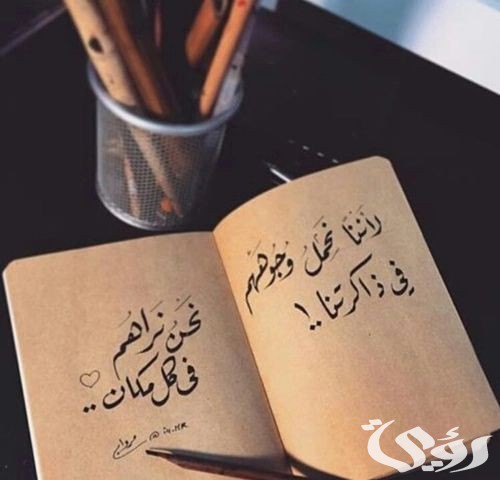 لأننا نحمل وجوههم
في ذاكرتنا .!
نحن نراهم
في كل مكان ..
رؤية